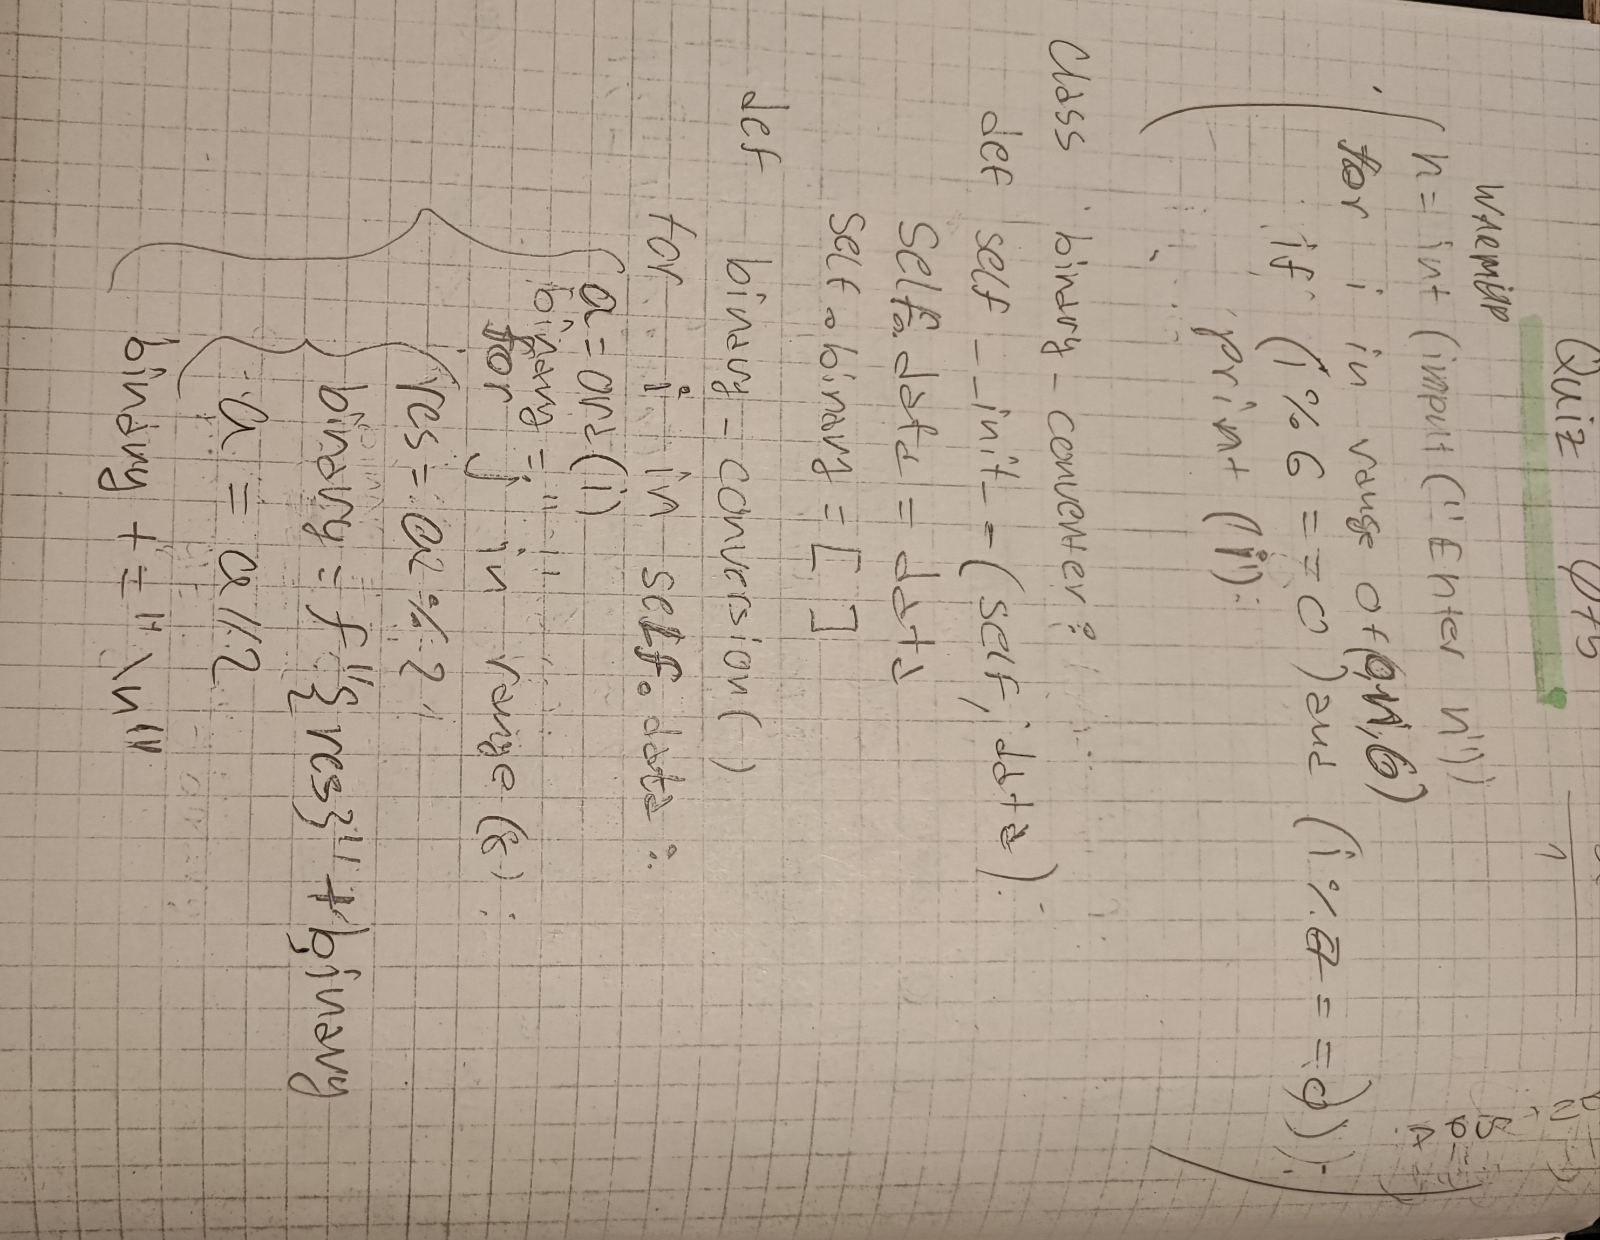 Quiz
n = int (input ("Enter n"))
for i in range
if (i % 6 == 0) and (i %
print (i)
class binary_converter:
def self __init__ (self, data)
self.data = data
self.binary = []
def binary_conversion()
for i in self.data:
a = ord(i)
binary = ""
for j in range(8):
res = a % 2
binary = f"{res}" + binary
a = a // 2
binary += "\n"